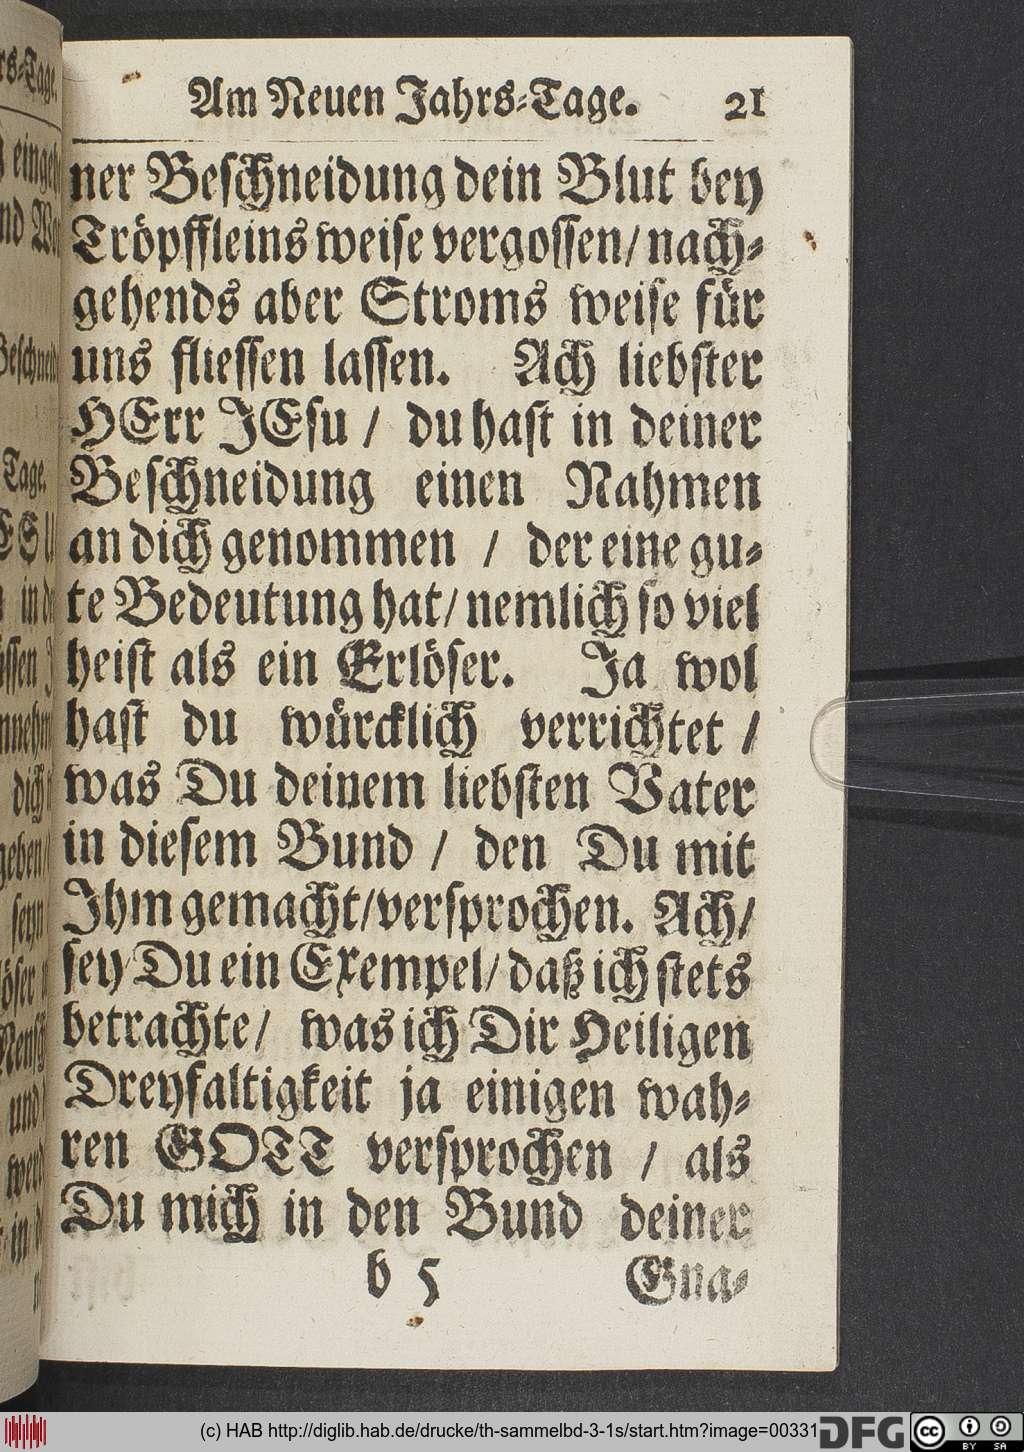 Am Neuen Jahrs-Tage. 21
ner Beschneidung dein Blut bey
Tröpffleins weise vergossen/ nach-
gehends aber Stroms weise für
uns fliessen lassen. Ach liebster
HErr JEsu / du hast in deiner
Beschneidung einen Nahmen
an dich genommen / der eine gu-
te Bedeutung hat/ nemlich so viel
heist als ein Erlöser. Ja wol
hast du würcklich verrichtet /
was Du deinem liebsten Vater
in diesem Bund / den Du mit
Ihm gemacht/versprochen. Ach/
sey Du ein Exempel/ daß ich stets
betrachte/ was ich Dir Heiligen
Dreyfaltigkeit ja einigen wah-
ren GOTT versprochen / als
Du mich in den Bund deiner
b 5 Gna-
(c) HAB http://diglib.hab.de/drucke/th-sammelbd-3-1s/start.htm?image=00331
DFG
cc BY SA